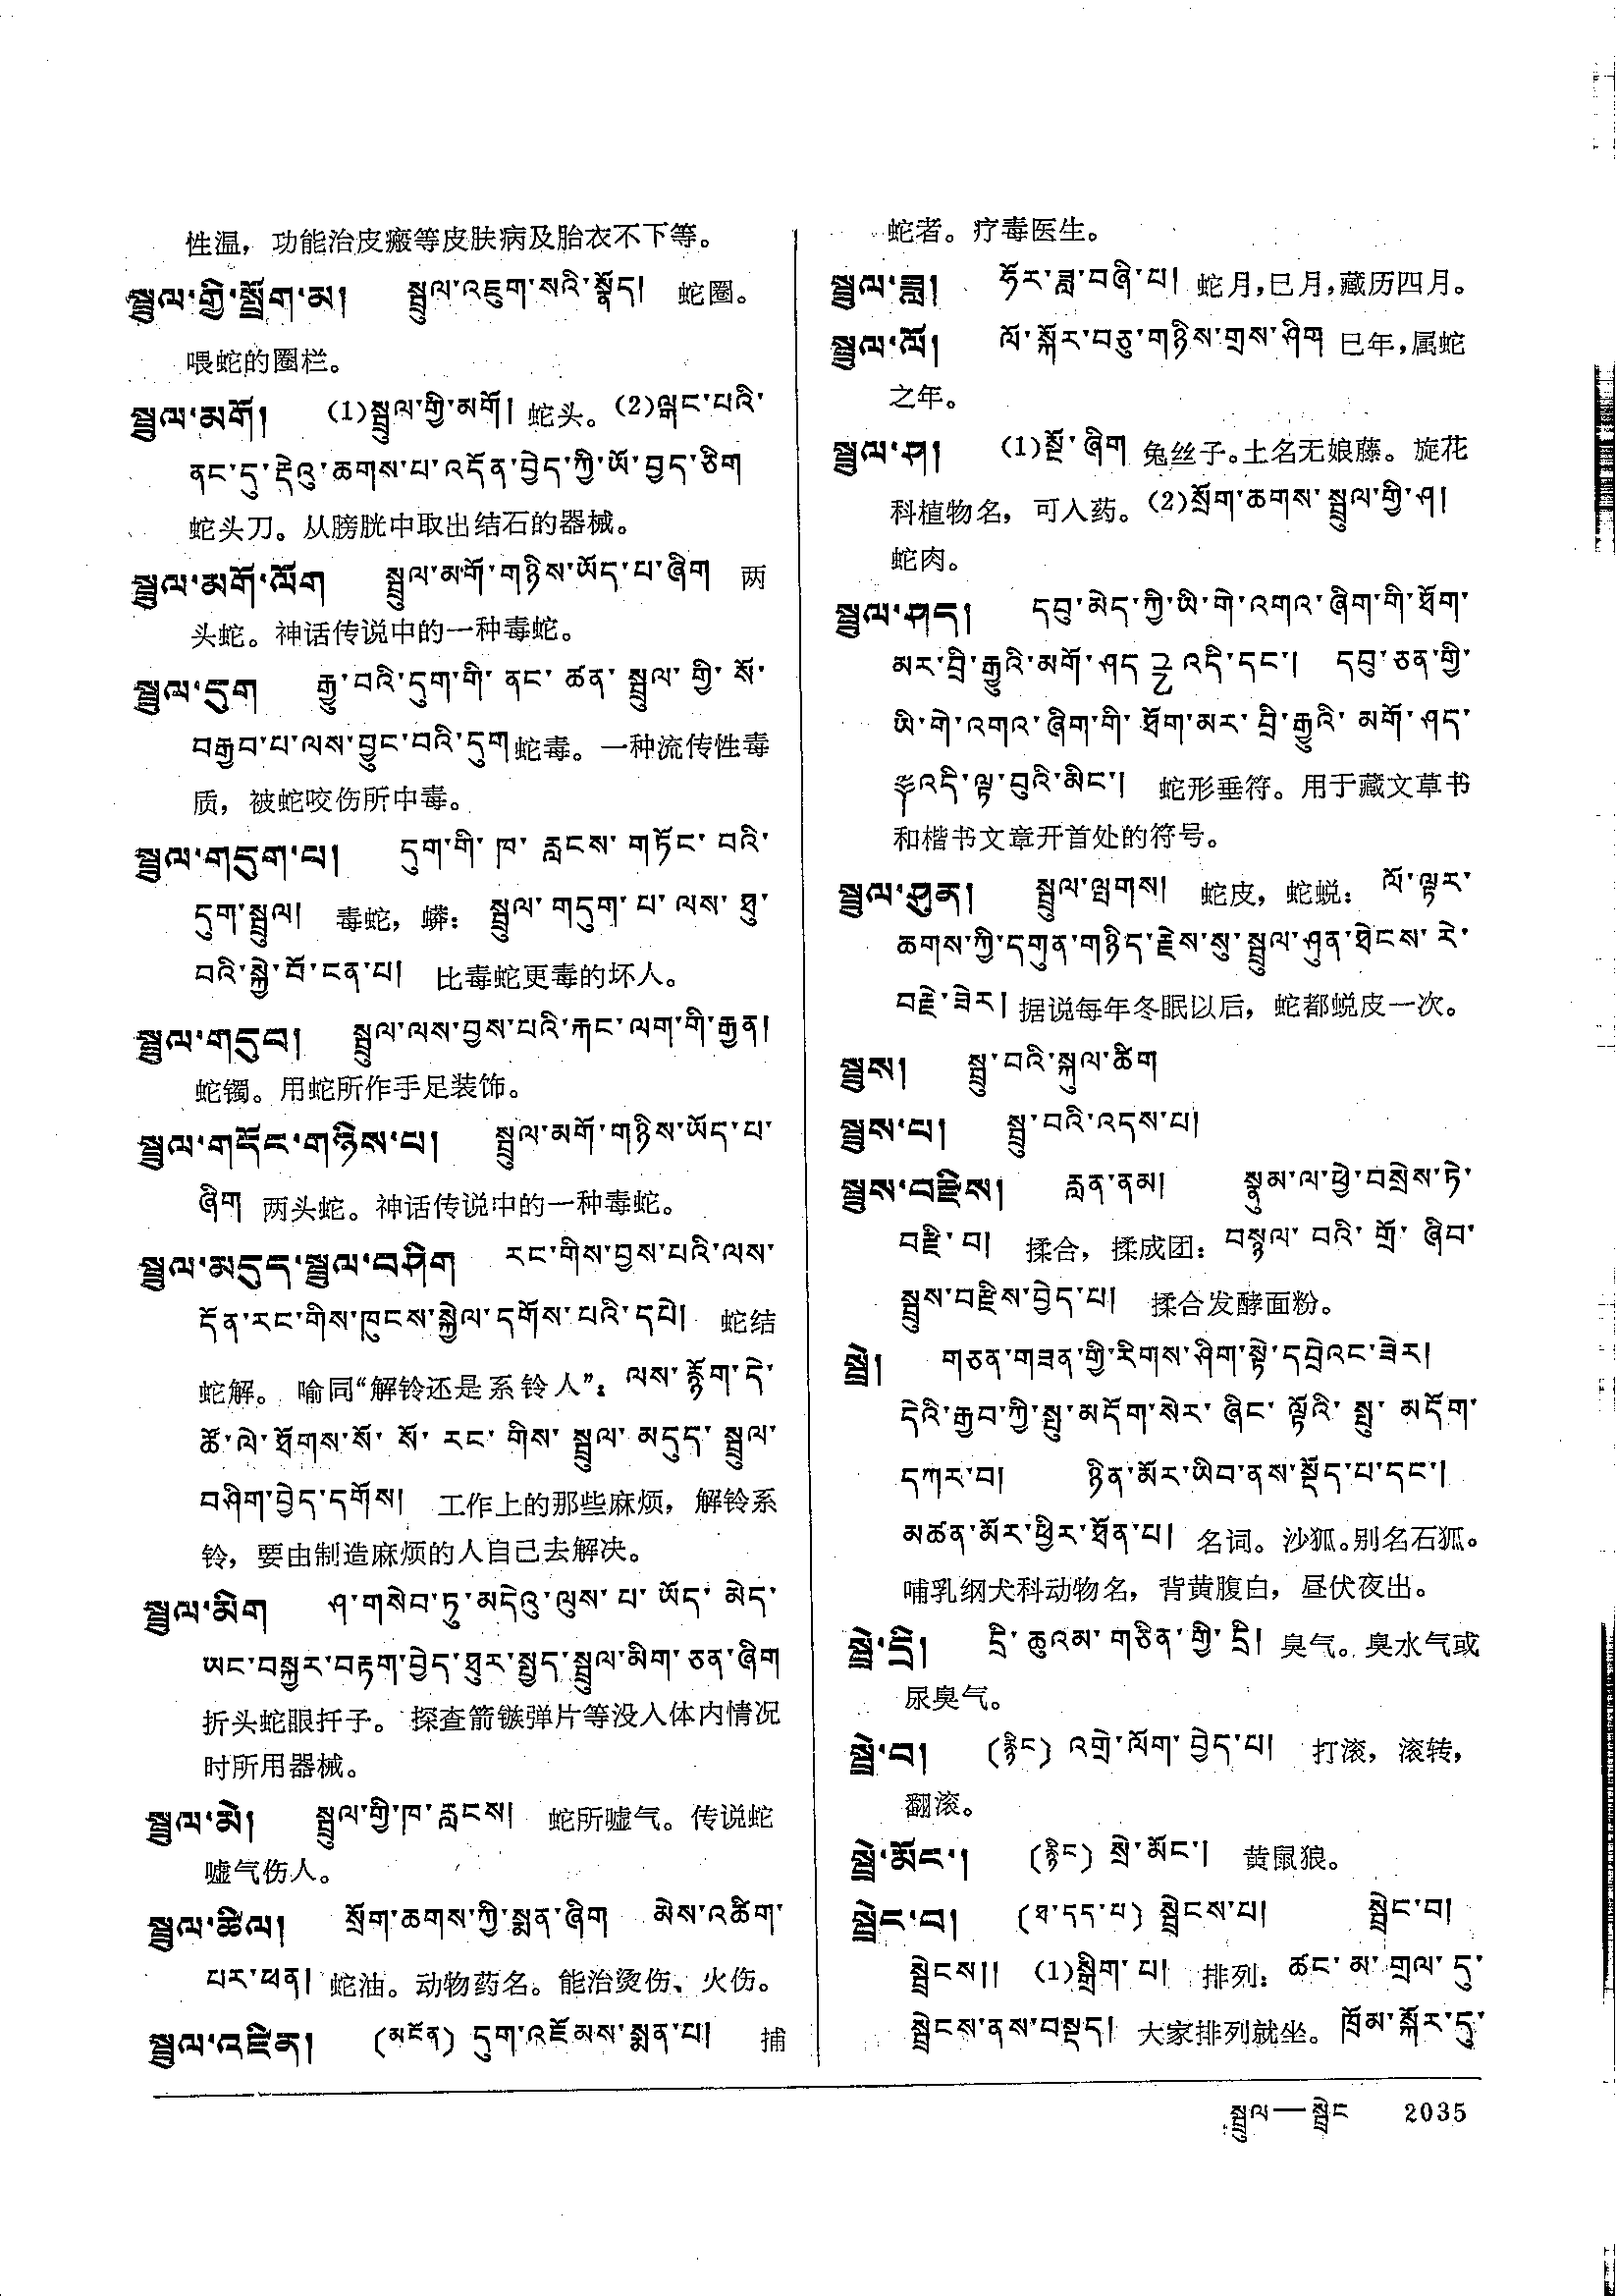 性温，功能治皮瘢等皮肤病及胎衣不下等。
སྦྲུལ་གྱི་སྒྲོག་མ། སྦྲུལ་འཇུག་སའི་སྣོད། 蛇圈。
喂蛇的圈栏。
སྦྲུལ་མགོ། (1)སྦྲུལ་གྱི་མགོ། 蛇头。(2)ལྒང་པའི་
ནང་དུ་རྡེའུ་ཆགས་པ་འདོན་བྱེད་ཀྱི་ཡོ་བྱད་ཅིག
蛇头刀。从膀胱中取出结石的器械。
སྦྲུལ་མགོ་ལོག སྦྲུལ་མགོ་གཉིས་ཡོད་པ་ཞིག 两
头蛇。神话传说中的一种毒蛇。
སྦྲུལ་དུག རྒྱུ་བའི་དུག་གི་ནང་ཚན་སྦྲུལ་གྱི་སོ་
བརྒྱབ་པ་ལས་བྱུང་བའི་དུག 蛇毒。一种流传性毒
质，被蛇咬伤所中毒。
སྦྲུལ་གདུག་པ། དུག་གི་ཁ་རླངས་གཏོང་བའི་
དུག་སྦྲུལ། 毒蛇，蟒：སྦྲུལ་གདུག་པ་ལས་ཐུ་
བའི་སྐྱེ་བོ་ངན་པ། 比毒蛇更毒的坏人。
སྦྲུལ་གདུབ། སྦྲུལ་ལས་བྱས་པའི་རྐང་ལག་གི་རྒྱན།
蛇镯。用蛇所作手足装饰。
སྦྲུལ་གདོང་གཉིས་པ། སྦྲུལ་མགོ་གཉིས་ཡོད་པ་
ཞིག 两头蛇。神话传说中的一种毒蛇。
སྦྲུལ་མདུད་སྦྲུལ་བཤིག རང་གིས་བྱས་པའི་ལས་
དོན་རང་གིས་ཁུངས་སྐྱེལ་དགོས་པའི་དཔེ། 蛇结
蛇解。喻同“解铃还是系铃人”：ལས་རྙོག་དེ་
ཚོ་ལེ་ཐོགས་སོ་སོ་རང་གིས་སྦྲུལ་མདུད་སྦྲུལ་
བཤིག་བྱེད་དགོས། 工作上的那些麻烦，解铃系
铃，要由制造麻烦的人自己去解决。
སྦྲུལ་མིག ཤ་གསེབ་ཏུ་མདེའུ་ལུས་པ་ཡོད་མེད་
ཡང་བསྐྱར་བརྟག་བྱེད་ཐུར་སྤྱད་སྦྲུལ་མིག་ཅན་ཞིག
折头蛇眼扦子。探查箭镞弹片等没入体内情况
时所用器械。
སྦྲུལ་མེ། སྦྲུལ་གྱི་ཁ་རླངས། 蛇所嘘气。传说蛇
嘘气伤人。
སྦྲུལ་ཚིལ། སྲོག་ཆགས་ཀྱི་སྨན་ཞིག མེས་འཚིག་
པར་ཕན། 蛇油。动物药名。能治烫伤、火伤。
སྦྲུལ་འཛིན། (མངོན) དུག་འཇོམས་སྨན་པ། 捕
蛇者。疗毒医生。
སྦྲུལ་ཟླ། ཧོར་ཟླ་བཞི་པ། 蛇月，巳月，藏历四月。
སྦྲུལ་ལོ། ལོ་སྐོར་བཅུ་གཉིས་གྲས་ཤིག 巳年，属蛇
之年。
སྦྲུལ་ཤ། (1)སྔོ་ཞིག 兔丝子。土名无娘藤。旋花
科植物名，可入药。(2)སྲོག་ཆགས་སྦྲུལ་གྱི་ཤ།
蛇肉。
སྦྲུལ་ཤད། དབུ་མེད་ཀྱི་ཡི་གེ་འགའ་ཞིག་གི་ཐོག་
མར་བྲི་རྒྱུའི་མགོ་ཤད འདི་དང་། དབུ་ཅན་གྱི་
ཡི་གེ་འགའ་ཞིག་གི་ཐོག་མར་བྲི་རྒྱུའི་མགོ་ཤད་
འདི་ལྟ་བུའི་མིང་། 蛇形垂符。用于藏文草书
和楷书文章开首处的符号。
སྦྲུལ་ཤུན། སྦྲུལ་ལྤགས། 蛇皮，蛇蜕：ལོ་ལྟར་
ཆགས་ཀྱི་དགུན་གཉིད་རྗེས་སུ་སྦྲུལ་ཤུན་ཐེངས་རེ་
བརྗེ་ཟེར། 据说每年冬眠以后，蛇都蜕皮一次。
སྦྲུས། སྦྲུ་བའི་སྐུལ་ཚིག
སྦྲུས་པ། སྦྲུ་བའི་འདས་པ།
སྦྲུས་བརྫིས། རླན་ནམ། སྣུམ་ལ་ཕྱེ་བསྲེས་ཏེ་
བརྫི་བ། 揉合，揉成团：བསྙལ་བའི་གྲོ་ཞིབ་
སྦྲུས་བརྫིས་བྱེད་པ། 揉合发酵面粉。
སྦྲེ། གཅན་གཟན་གྱི་རིགས་ཤིག་སྟེ་དབྲེའང་ཟེར།
དེའི་རྒྱབ་ཀྱི་སྤུ་མདོག་སེར་ཞིང་ལྟོའི་སྤུ་མདོག་
དཀར་བ། ཉིན་མོར་ཡིབ་ནས་སྡོད་པ་དང་།
མཚན་མོར་ཕྱིར་ཐོན་པ། 名词。沙狐。别名石狐。
哺乳纲犬科动物名，背黄腹白，昼伏夜出。
སྦྲེ་དྲི། དྲི་ཆུའམ་གཅིན་གྱི་དྲི། 臭气。臭水气或
尿臭气。
སྦྲེ་བ། (རྙིང) འགྲེ་ལོག་བྱེད་པ། 打滚，滚转，
翻滚。
སྦྲེ་མོང་། (རྙིང) སྲེ་མོང་། 黄鼠狼。
སྦྲེང་བ། (ཐ་དད་པ) སྦྲེངས་པ། སྦྲེང་བ།
སྦྲེངས།། (1)སྒྲིག་པ། 排列：ཚང་མ་གྲལ་དུ་
སྦྲེངས་ནས་བསྡད། 大家排列就坐。ཁྲོམ་སྐོར་དུ་
སྦྲུལ—སྦྲེང 2035